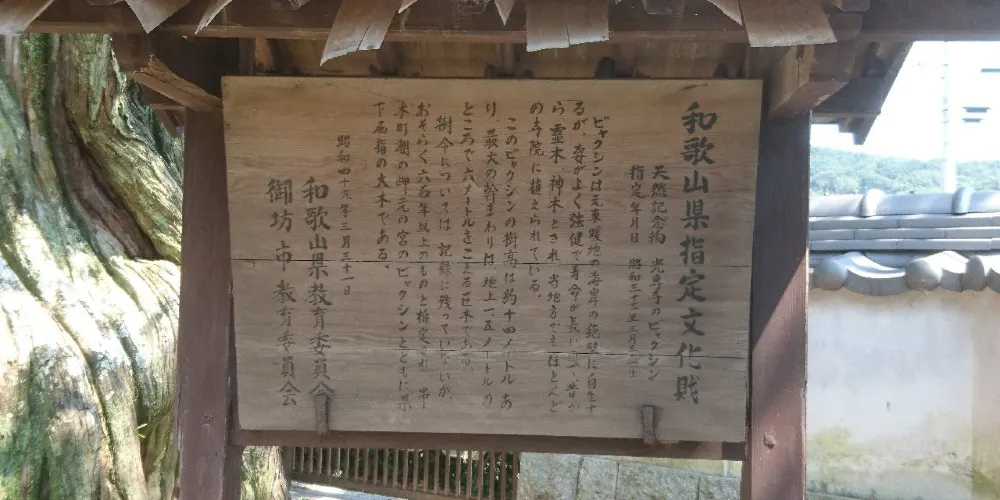 和歌山県指定文化財
天然記念物 光専寺のビャクシン
指定年月日 昭和三十
ビャクシンは元来暖地の海岸の絶壁に自生す
るが、姿がよく強健で寿命が長いので、昔か
ら霊木、神木とされ、当地方でもほとんど
の寺院に植えられている。
このビャクシンの樹高は約十四メートルあ
り、最大の幹まわりは、地上一.五メートルの
ところで六メートルをこえる巨木である。
樹令については、記録に残っていないが、
おそらく六百年以上のものと推定され、串
本町潮の岬元の宮のビャクシンとともに県
下屈指の大木である。
昭和四十九年三月三十一日
和歌山県教育委員会
御坊市教育委員会